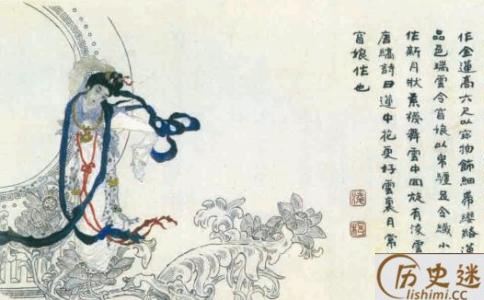 作金蓮高六尺以宝物飾細帶纓絡蓮
品色瑞雲令窅娘以帛纏足令纖小
作新月狀素襪舞雲中回旋有凌雲
唐縞詩曰蓮中花更好雲裏月常
窅娘作也
历史迷
lishimi.cc